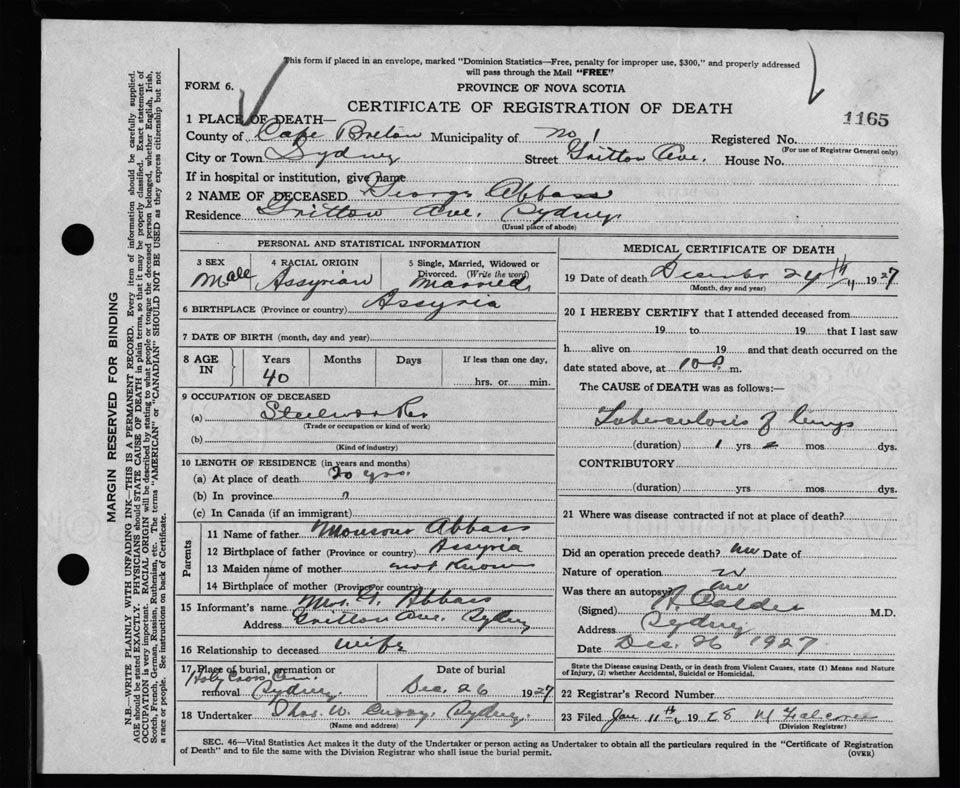 This form if placed in an envelope, marked "Dominion Statistics—Free, penalty for improper use, $300," and properly addressed
will pass through the Mail "FREE"
FORM 6.
PROVINCE OF NOVA SCOTIA
CERTIFICATE OF REGISTRATION OF DEATH
1165
1 PLACE OF DEATH—
County of Cape Breton Municipality of No 1 Registered No.
(For use of Registrar General only)
City or Town Sydney Street Gritton Ave. House No.
If in hospital or institution, give name
2 NAME OF DECEASED George Abbass
Residence Gritton Ave. Sydney
(Usual place of abode)
PERSONAL AND STATISTICAL INFORMATION
3 SEX
Male
4 RACIAL ORIGIN
Assyrian
5 Single, Married, Widowed or Divorced. (Write the word)
Married
6 BIRTHPLACE (Province or country) Assyria
7 DATE OF BIRTH (month, day and year)
8 AGE IN
Years Months Days If less than one day,
40 hrs. or min.
9 OCCUPATION OF DECEASED
(a) Steelworker
(Trade or occupation or kind of work)
(b)
(Kind of industry)
10 LENGTH OF RESIDENCE (in years and months)
(a) At place of death 20 yrs.
(b) In province "
(c) In Canada (if an immigrant)
Parents
11 Name of father Monsour Abbass
12 Birthplace of father (Province or country) Assyria
13 Maiden name of mother not known
14 Birthplace of mother (Province or country)
15 Informant's name Mrs. G. Abbass
Address Gritton Ave. Sydney
16 Relationship to deceased wife
17 Place of burial, cremation or removal
Holy Cross Cem. Sydney
Date of burial
Dec. 26 1927
18 Undertaker Thos. W. Curry Sydney
(Name and address)
MEDICAL CERTIFICATE OF DEATH
19 Date of death December 24th 1927
(Month, day and year)
20 I HEREBY CERTIFY that I attended deceased from
19 to 19 that I last saw
h alive on 19 and that death occurred on the
date stated above, at 10 P. m.
The CAUSE of DEATH was as follows:—
Tuberculosis of lungs
(duration) 1 yrs 2 mos dys.
CONTRIBUTORY
(duration) yrs mos dys.
21 Where was disease contracted if not at place of death?
Did an operation precede death? no Date of
Nature of operation
Was there an autopsy? no
(Signed) H. Calder M.D.
Address Sydney
Date Dec. 26 1927
State the Disease causing Death, or in death from Violent Causes, state (1) Means and Nature
of Injury, (2) whether Accidental, Suicidal or Homicidal.
22 Registrar's Record Number
23 Filed Jan 11th 1928
(Division Registrar)
SEC. 46—Vital Statistics Act makes it the duty of the Undertaker or person acting as Undertaker to obtain all the particulars required in the "Certificate of Registration
of Death" and to file the same with the Division Registrar who shall issue the burial permit.
(OVER)
MARGIN RESERVED FOR BINDING
N.B.—WRITE PLAINLY WITH UNFADING INK—THIS IS A PERMANENT RECORD. Every item of information should be carefully supplied.
AGE should be stated EXACTLY. PHYSICIANS should STATE CAUSE OF DEATH in plain terms, so that it may be properly classified. Exact statement of
OCCUPATION is very important. RACIAL ORIGIN will be described by stating to what people or tongue the deceased person belonged, whether English, Irish,
Scotch, French, German, Russian, Ruthenian, etc. The terms "AMERICAN" or "CANADIAN" SHOULD NOT BE USED as they express citizenship but not
a race or people. See instructions on back of Certificate.